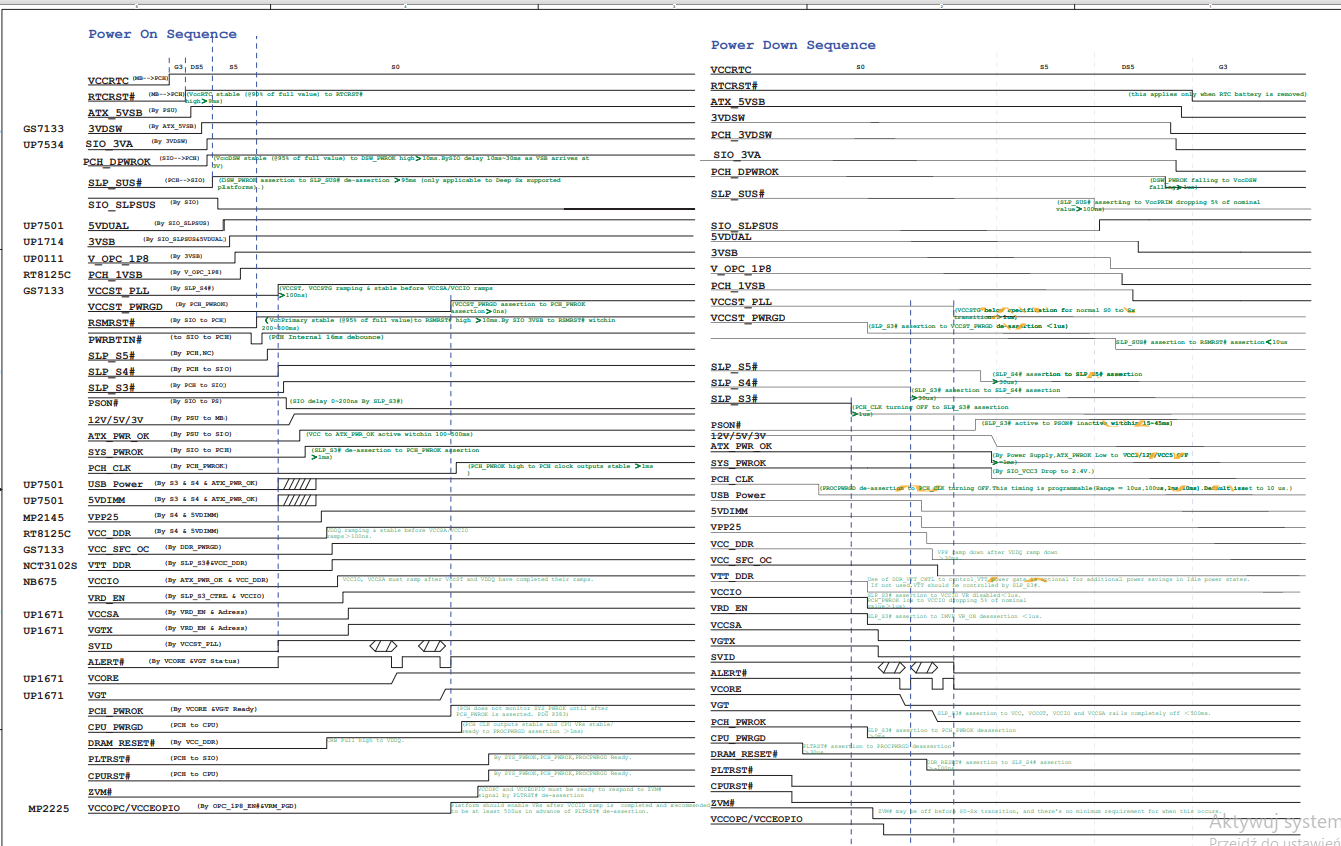 Power On Sequence
G3 DS5 S5 S0
VCCRTC (MB-->PCH)
RTCRST# (MB-->PCH) (VccRTC stable (@90% of full value) to RTCRST#
high>9ms)
ATX_5VSB (By PSU)
GS7133 3VDSW (By ATX_5VSB)
UP7534 SIO_3VA (By 3VDSW)
PCH_DPWROK (SIO-->PCH) (VccDSW stable (@95% of full value) to DSW_PWROK high>10ms.BySIO delay 10ms~30ms as VSB arrives at
3V)
SLP_SUS# (PCH-->SIO) (DSW_PWROK assertion to SLP_SUS# de-assertion >95ms (only applicable to Deep Sx supported
platforms).)
SIO_SLPSUS (By SIO)
UP7501 5VDUAL (By SIO_SLPSUS)
UP1714 3VSB (By SIO_SLPSUS&5VDUAL)
UP0111 V_OPC_1P8 (By 3VSB)
RT8125C PCH_1VSB (By V_OPC_1P8)
GS7133 VCCST_PLL (By SLP_S4#) (VCCST, VCCSTG ramping & stable before VCCSA/VCCIO ramps
>100ns)
VCCST_PWRGD (By PCH_PWROK) (VCCST_PWRGD assertion to PCH_PWROK
assertion>0ns)
RSMRST# (By SIO to PCH) (VccPrimary stable (@95% of full value)to RSMRST# high >10ms.By SIO 3VSB to RSMRST# witchin
200~800ms)
PWRBTIN# (to SIO to PCH) (PCH Internal 16ms debounce)
SLP_S5# (By PCH,NC)
SLP_S4# (By PCH to SIO)
SLP_S3# (By PCH to SIO)
PSON# (By SIO to PS) (SIO delay 0~200ns By SLP_S3#)
12V/5V/3V (By PSU to MB)
ATX_PWR_OK (By PSU to SIO) (VCC to ATX_PWR_OK active witchin 100~500ms)
SYS_PWROK (By SIO to PCH) (SLP_S3# de-assertion to PCH_PWROK assertion
>1ms)
PCH_CLK (By PCH_PWROK) (PCH_PWROK high to PCH clock outputs stable >1ms
)
UP7501 USB Power (By S3 & S4 & ATX_PWR_OK)
UP7501 5VDIMM (By S3 & S4 & ATX_PWR_OK)
MP2145 VPP25 (By S4 & 5VDIMM)
RT8125C VCC_DDR (By S4 & 5VDIMM) VDDQ ramping & stable before VCCSA/VCCIO
ramps>100ns.
GS7133 VCC_SFC_OC (By DDR_PWRGD)
NCT3102S VTT_DDR (By SLP_S3#&VCC_DDR)
NB675 VCCIO (By ATX_PWR_OK & VCC_DDR) VCCIO, VCCSA must ramp after VccST and VDDQ have completed their ramps.
VRD_EN (By SLP_S3_CTRL & VCCIO)
UP1671 VCCSA (By VRD_EN & Adress)
UP1671 VGTX (By VRD_EN & Adress)
SVID (By VCCST_PLL)
ALERT# (By VCORE &VGT Status)
UP1671 VCORE
UP1671 VGT
PCH_PWROK (By VCORE &VGT Ready) (PCH does not monitor SYS_PWROK until after
PCH_PWROK is asserted. PDG P383)
CPU_PWRGD (PCH to CPU) (PCH CLK outputs stable and CPU VRs stable/
ready to PROCPWRGD assertion >1ms)
DRAM_RESET# (By VCC_DDR) CRB Pull high to VDDQ.
PLTRST# (PCH to SIO) By SYS_PWROK,PCH_PWROK,PROCPWRGD Ready.
CPURST# (PCH to CPU) By SYS_PWROK,PCH_PWROK,PROCPWRGD Ready.
ZVM# VCCOPC and VCCEOPIO must be ready to respond to ZVM#
signal by PLTRST# de-assertion
MP2225 VCCOPC/VCCEOPIO (By OPC_1P8_EN#&VRM_PGD) Platform should enable VRs after VCCIO ramp is completed and recommended
to be at least 500us in advance of PLTRST# de-assertion.
Power Down Sequence
S0 S5 DS5 G3
VCCRTC
RTCRST# (this applies only when RTC battery is removed)
ATX_5VSB
3VDSW
PCH_3VDSW
SIO_3VA
PCH_DPWROK
(DSW_PWROK falling to VccDSW
falling>1us)
SLP_SUS#
(SLP_SUS# asserting to VccPRIM dropping 5% of nominal
value>100ns)
SIO_SLPSUS
5VDUAL
3VSB
V_OPC_1P8
PCH_1VSB
VCCST_PLL
(VCCSTG below specification for normal S0 to Sx
transition>1us,
VCCST_PWRGD
(SLP_S3# assertion to VCCST_PWRGD de-assertion <1us)
SLP_SUS# assertion to RSMRST# assertion<10us
SLP_S5#
(SLP_S4# assertion to SLP_S5# assertion
>30us)
SLP_S4#
(SLP_S3# assertion to SLP_S4# assertion
>30us)
SLP_S3#
(PCH_CLK turning OFF to SLP_S3# assertion
>1us)
PSON# (SLP_S3# active to PSON# inactive witchin 15~45ms)
12V/5V/3V
ATX_PWR_OK
(By Power Supply,ATX_PWROK Low to VCC3/12V/VCC5 OFF
>~1ms)
SYS_PWROK
(By SIO_VCC3 Drop to 2.4V.)
PCH_CLK
(PROCPWRGD de-assertion to PCH_CLK turning OFF.This timing is programable(Range = 10us,100us,1ms,10ms).Default isset to 10 us.)
USB Power
5VDIMM
VPP25
VCC_DDR
VPP ramp down after VDDQ ramp down
VCC_SFC_OC
VTT_DDR
Use of DDR_VTT_CNTL to control VTT power gate is optional for additional power savings in Idle power states.
If not used,VTT should be controlled by SLP_S3#.
VCCIO
SLP_S3# assertion to VCCIO VR disabled<1us.
PCH_PWROK low to VCCIO dropping 5% of nominal
VRD_EN
SLP_S3# assertion to IMVP VR_ON deassertion <1us.
VCCSA
VGTX
SVID
ALERT#
VCORE
VGT
SLP_S3# assertion to VCC, VCCGT, VCCIO and VCCSA rails completely off <500ms.
PCH_PWROK
SLP_S3# assertion to PCH_PWROK deassertion
CPU_PWRGD
PLTRST# assertion to PROCPWRGD deassertion
DRAM_RESET#
DDR_RESET# assertion to SLP_S4# assertion
PLTRST#
CPURST#
ZVM#
ZVM# may be off before S0-Sx transition, and there's no minimum requirement for when this occurs.
VCCOPC/VCCEOPIO
Aktywuj system
Przejdź do ustawień